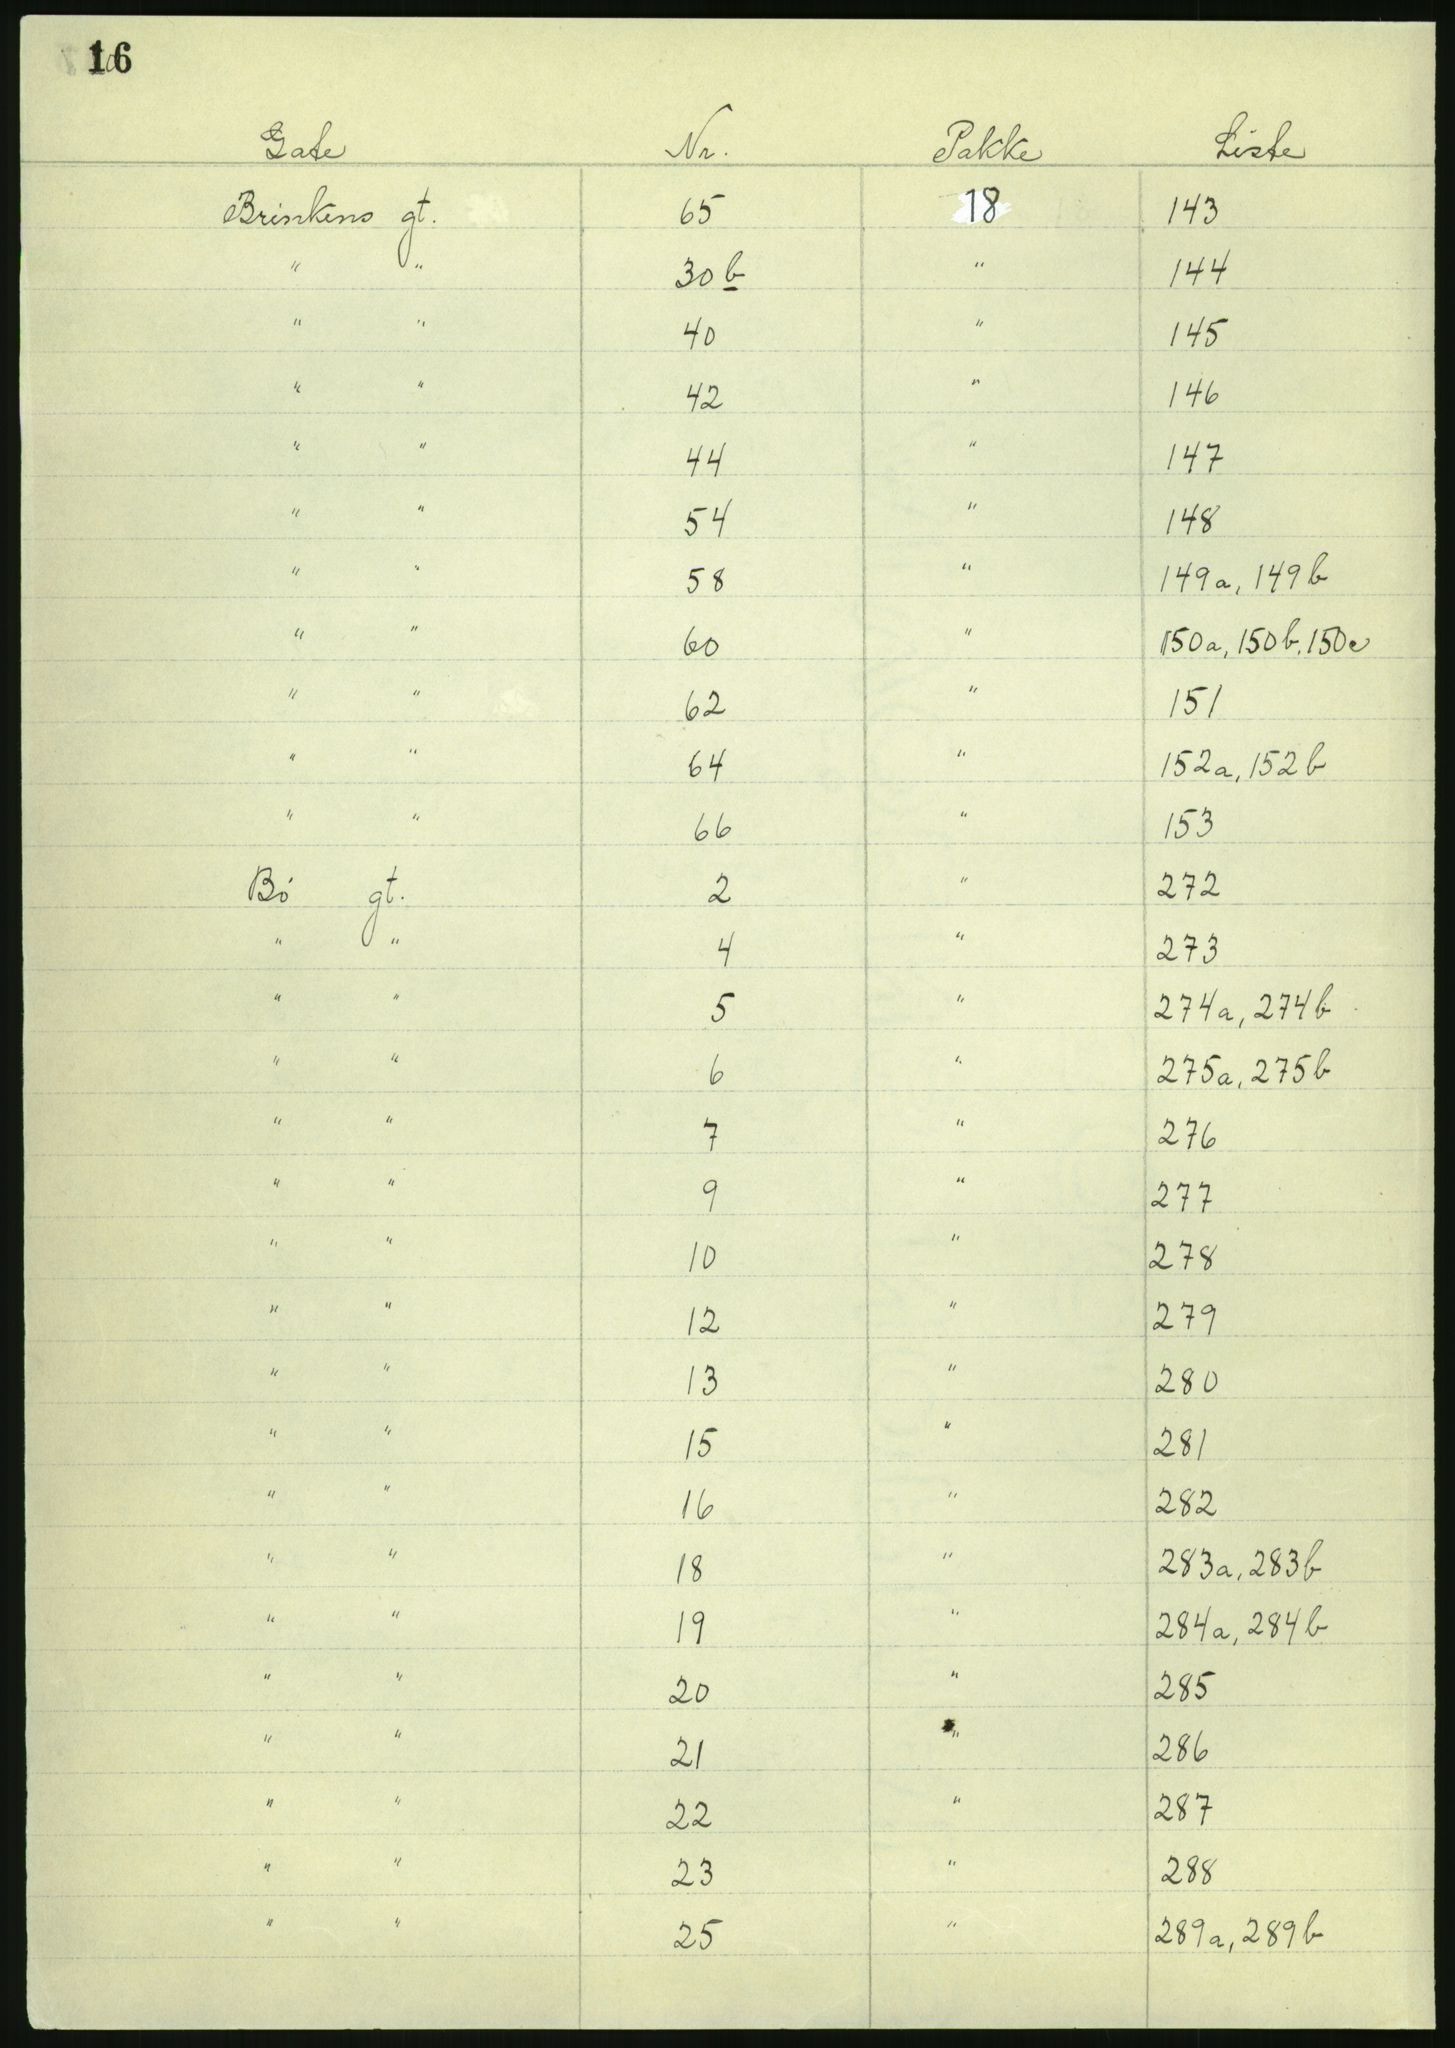 16
Gate Nr. Pakke Liste
Brinkens gt. 65 18 143
" " 30b " 144
" " 40 " 145
" " 42 " 146
" " 44 " 147
" " 54 " 148
" " 58 " 149a, 149b
" " 60 " 150a, 150b, 150c
" " 62 " 151
" " 64 " 152a, 152b
" " 66 " 153
Bö gt. 2 " 272
" " 4 " 273
" " 5 " 274a, 274b
" " 6 " 275a, 275b
" " 7 " 276
" " 9 " 277
" " 10 " 278
" " 12 " 279
" " 13 " 280
" " 15 " 281
" " 16 " 282
" " 18 " 283a, 283b
" " 19 " 284a, 284b
" " 20 " 285
" " 21 " 286
" " 22 " 287
" " 23 " 288
" " 25 " 289a, 289b